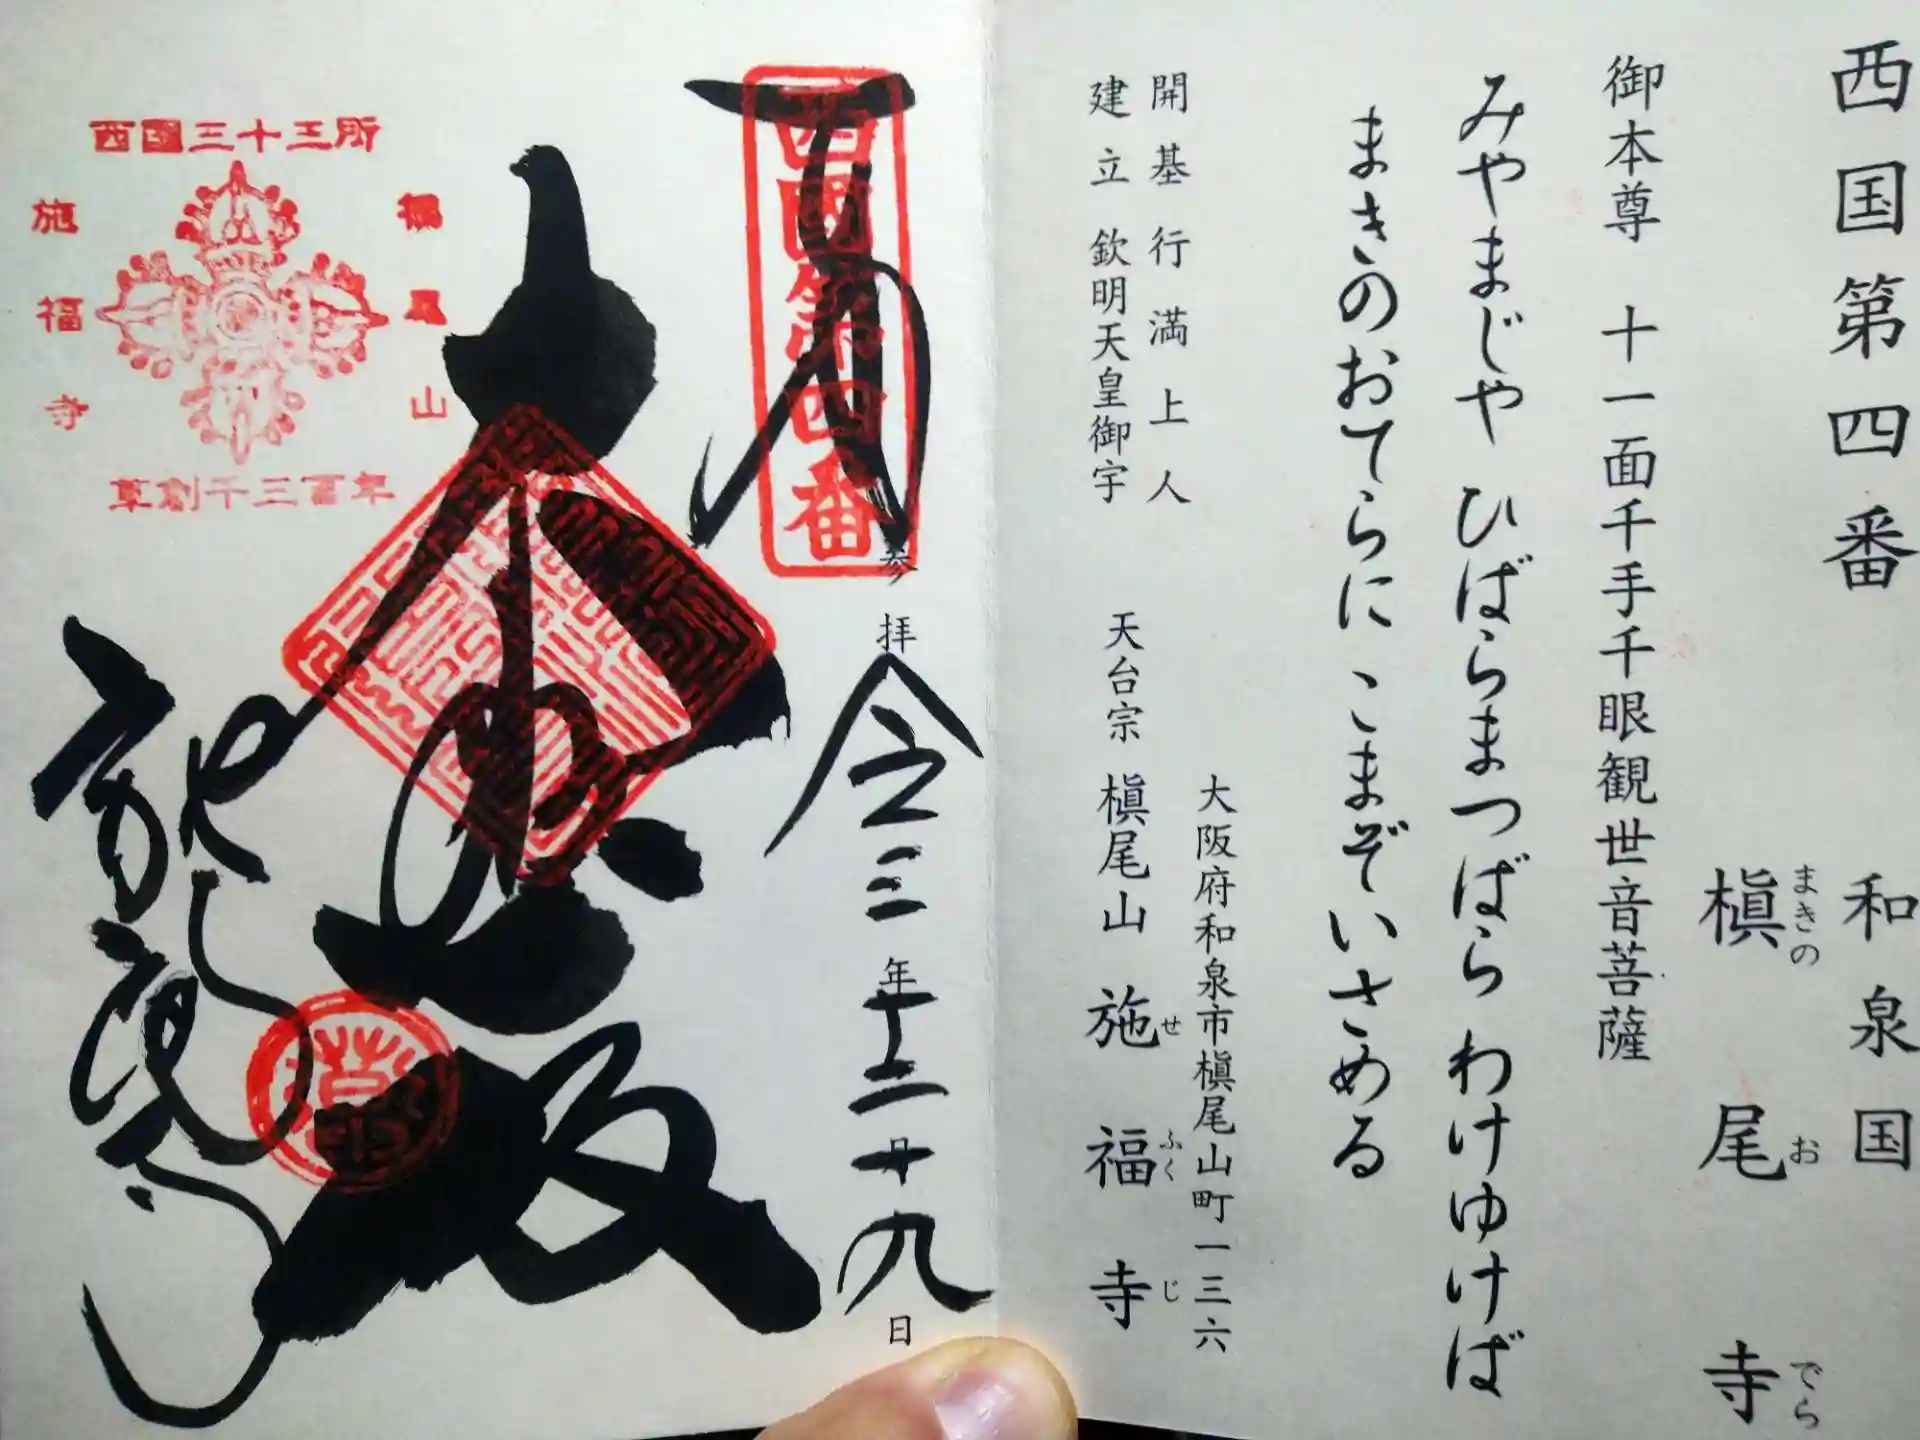 西国第四番
和泉国
槇尾寺
まきのおでら
御本尊 十一面千手千眼観世音菩薩
みやまじや ひばらまつばら わけゆけば
まきのおてらに こまぞいさめる
開基 行満上人
建立 欽明天皇御宇
大阪府和泉市槇尾山町一三六
天台宗 槇尾山 施福寺
せふくじ
西國第四番
参拝
令三年十二月廿九日
西国三十三所
槇尾山
施福寺
草創千三百年